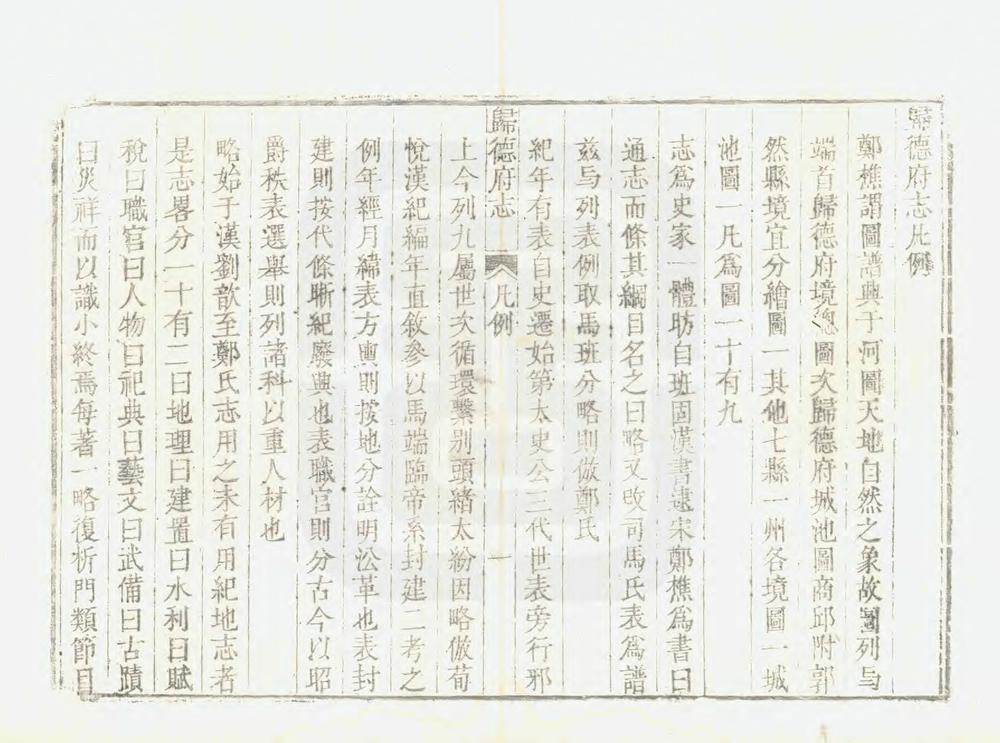 歸德府志凡例
鄭樵謂圖譜興于河圖天地自然之象故圖列与
端首歸德府境總圖次歸德府城池圖商邱附郭
然縣境宜分繪圖一其他七縣一州各境圖一城
池圖一凡為圖一十有九
志為史家一體昉自班固漢書逮宋鄭樵為書曰
通志而條其綱目名之曰略又攺司馬氏表為譜
兹与列表例取馬班分略則倣鄭氏
紀年有表自史遷始第太史公三代世表旁行邪
歸德府志 凡例 一
上今列九屬世次循環繫别頭緒太紛因略倣荀
悅漢紀編年直敘參以馬端臨帝系封建二考之
例年經月緯表方輿則按地分詮明㳂革也表封
建則按代條晰紀廢典也表職官則分古今以昭
爵秩表選舉則列諸科以重人材也
略始于漢劉歆至鄭氏志用之未有用紀地志者
是志畧分一十有二曰地理曰建置曰水利曰賦
稅曰職官曰人物曰祀典曰藝文曰武備曰古蹟
曰災祥而以識小終焉每著一略復析門類節目